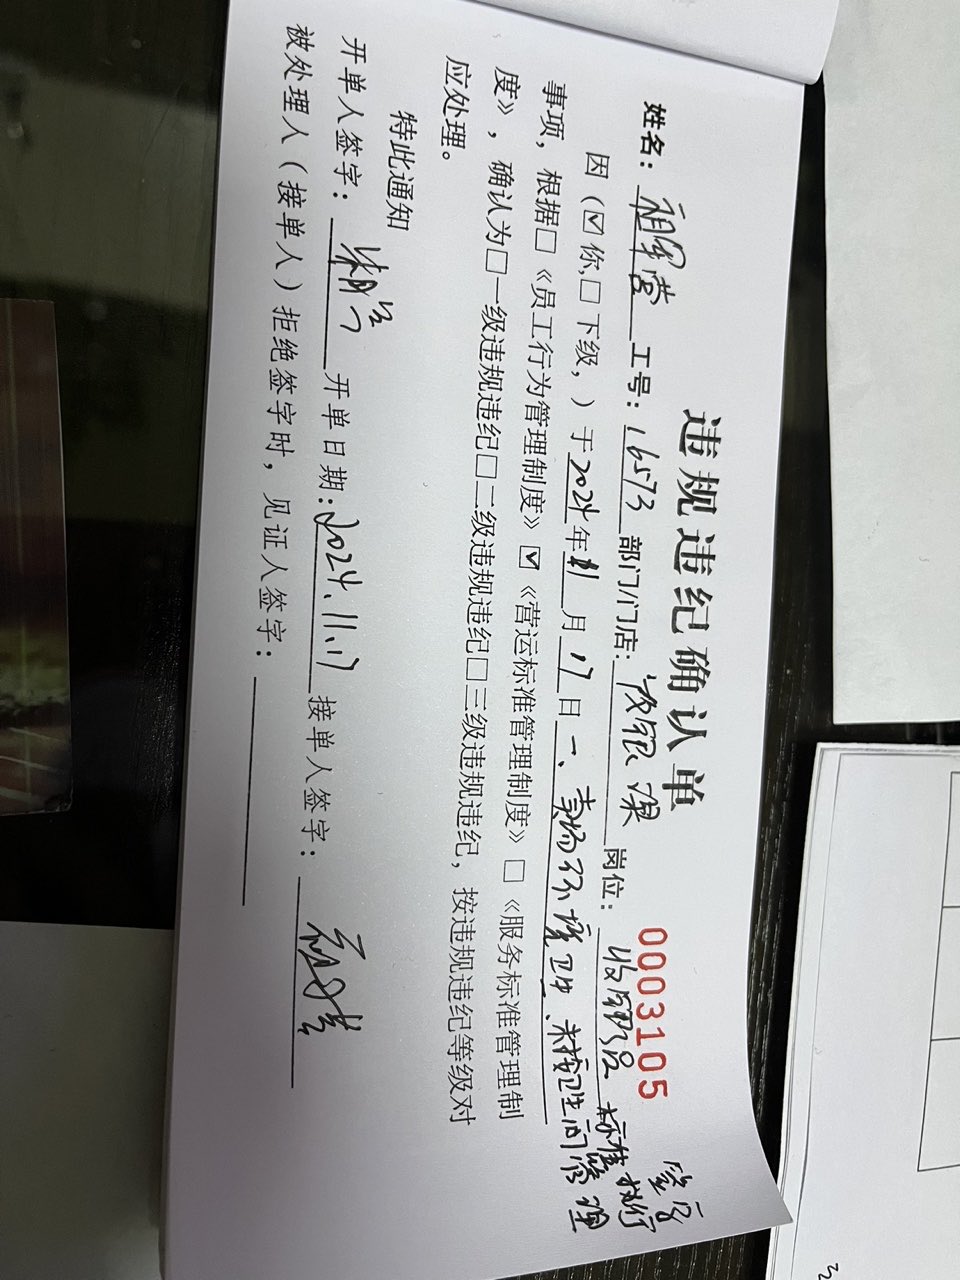 违规违纪确认单
0003105
姓名： 工号：16573 部门/门店： 岗位：收银员
因（☑你,□下级，）于2024年11月17日一、卖场环境卫生、未按卫生间管理
标准执行
签字
事项，根据□《员工行为管理制度》☑《营运标准管理制度》□《服务标准管理制
度》，确认为□一级违规违纪□二级违规违纪□三级违规违纪，按违规违纪等级对
应处理。
特此通知
开单人签字： 开单日期:2024.11.17 接单人签字：
被处理人（接单人）拒绝签字时，见证人签字：